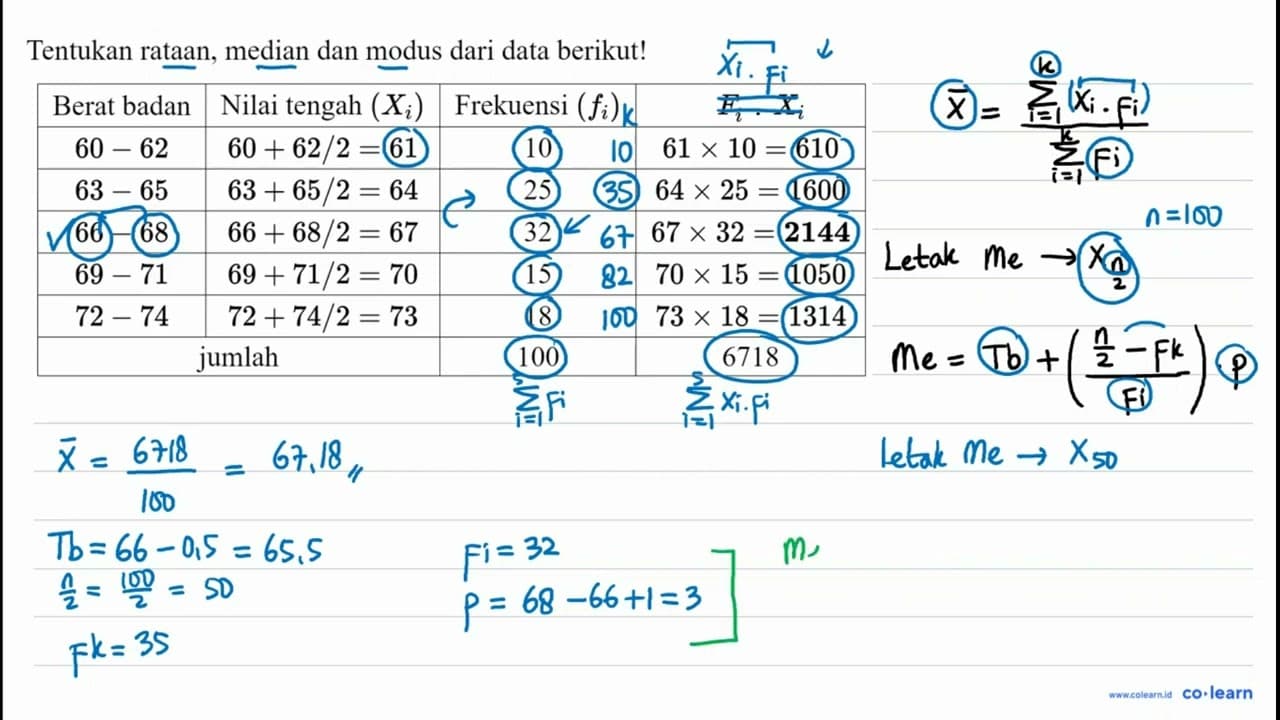 Tentukan rataan, median dan modus dari data berikut!
Xi . Fi ↓
Berat badan Nilai tengah (Xi) Frekuensi (fi) k Fi . Xi
60 – 62 60 + 62/2 = 61 10 10 61 × 10 = 610
63 – 65 63 + 65/2 = 64 25 35 64 × 25 = 1600
✓ 66 – 68 66 + 68/2 = 67 32 67 67 × 32 = 2144
69 – 71 69 + 71/2 = 70 15 82 70 × 15 = 1050
72 – 74 72 + 74/2 = 73 18 100 73 × 18 = 1314
jumlah 100 6718
5 Σ i=1 Fi 5 Σ i=1 Xi.fi
x̄ = k Σ i=1 (Xi . Fi) / k Σ i=1 Fi
n=100
Letak Me → X n/2
Me = Tb + ( (n/2 – Fk) / Fi ) . P
Letak Me → X50
x̄ = 6718/100 = 67,18 //
Tb = 66 – 0,5 = 65,5
n/2 = 100/2 = 50
Fk = 35
Fi = 32
p = 68 – 66 + 1 = 3
www.colearn.id co·learn